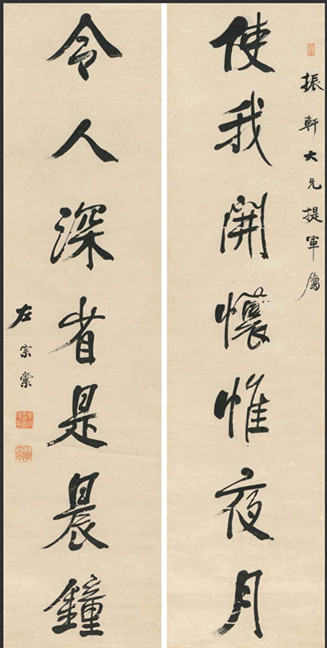 振軒大兄提軍屬
使我開懷惟夜月
令人深省是晨鐘
左宗棠